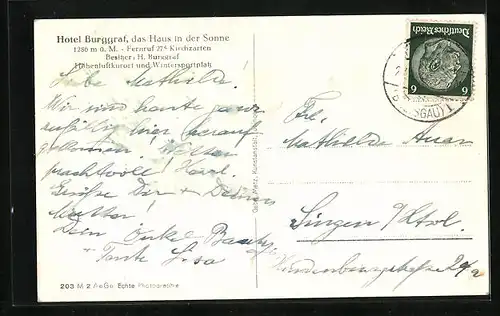 Hotel Burggraf, das Haus in der Sonne
1280 m ü. M. - Fernruf 276 Kirchzarten
Besitzer: H. Burggraf
Höhenluftkurort und Wintersportplatz
Liebe Mathilde!
Wir sind heute ganz
zufällig hier herauf
gekommen! Wetter
prachtvoll! Herzl.
Grüße Dir + Deiner
Mutter
Dein Onkel
+ Tante Lisa
203 M 2 AeGo Echte Photographie
Gebr. Metz, Kunstanstalt
Deutsches Reich
6 6
SGAU) 1
Frl.
Mathilde
Singen